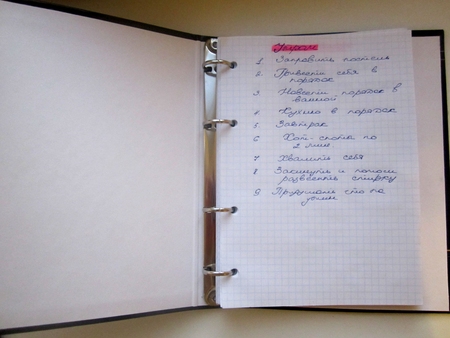 Утро
1 Заправить постель
2 Привести себя в
порядок
3 Навести порядок в
ванной
4 Кухню в порядок
5 Завтрак
6 Хот-споты по
2 мин
7 Хвалить себя
8 Закинуть и потом
развесить стирку
9